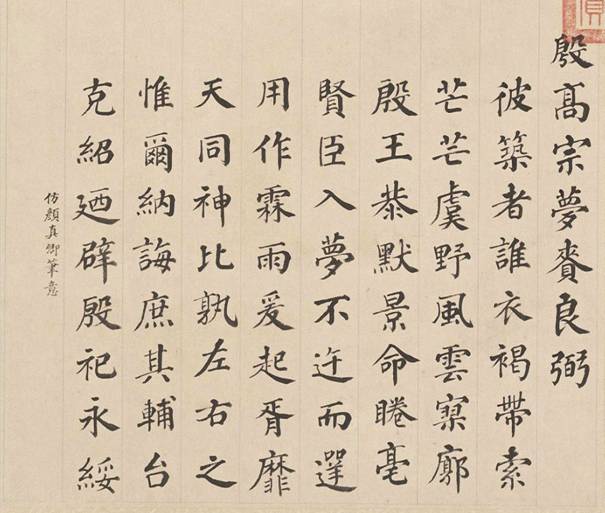 殷高宗夢賚良弼
彼築者誰衣褐帶索
芒芒虞野風雲寥廓
殷王恭默景命睠亳
賢臣入夢不迕而遻
用作霖雨爰起胥靡
天同神比孰左右之
惟爾納誨庶其輔台
克紹廼辟殷祀永綏
仿顏真卿筆意